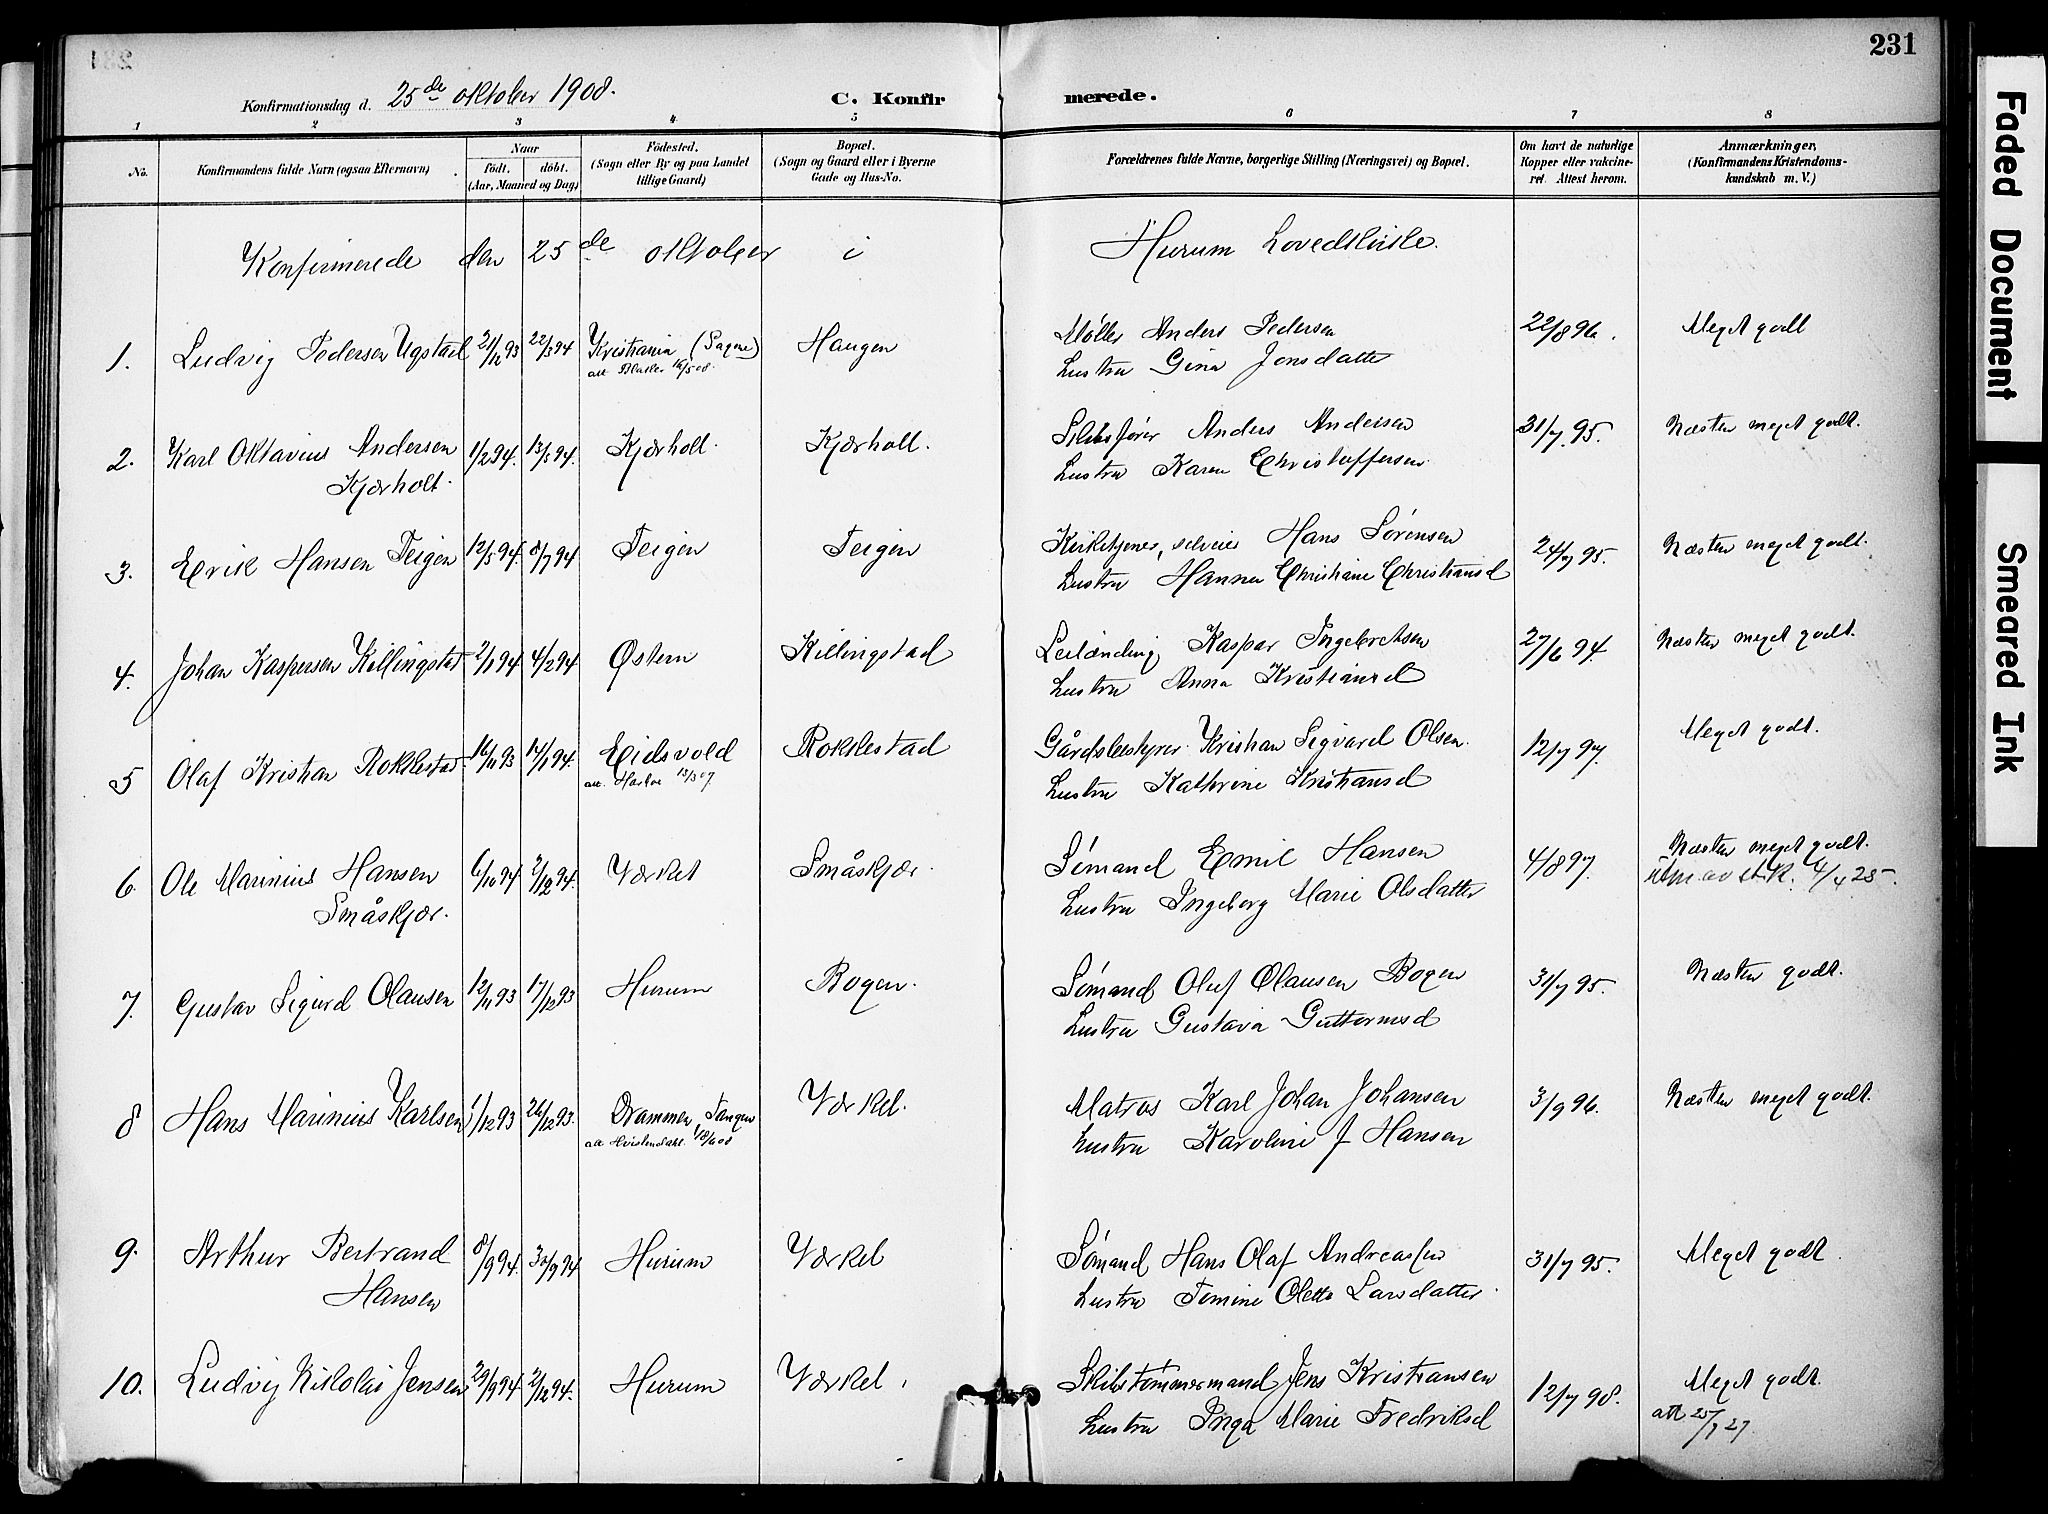 231
Konfirmationsdag d. 25de oktober 1908.
C. Konfirmerede.
1 2 3 4 5 6 7 8
No.
Konfirmandens fulde Navn (ogsaa Efternavn)
Naar
födt. döbt.
(Aar, Maaned og Dag)
Födested.
(Sogn eller By og paa Landet
tillige Gaard)
Bopæl.
(Sogn og Gaard eller i Byerne
Gade og Hus-No.
Forældrenes fulde Navne, borgerlige Stilling (Næringsvei) og Bopæl.
Om havt de naturlige
Kopper eller vakcine-
ret. Attest herom.
Anmærkninger,
(Konfirmandens Kristendoms-
kundskab m. V.)
Konfirmerede den 25de oktober i Hurum Hovedkirke.
1. Ludvig Pedersen Ugstad 21/12 93 22/3 94 Kristiania (Sagene) Haugen Møller Anders Pedersen 22/8 96. Meget godt
att 16/5 08. Hustru Gina Jonsdatter
2. Karl Oktavius Andersen 1/2 94. 13/5 94. Kjærholt. Kjærholt. Skibsfører Anders Andersen 31/7 95. Næsten meget godt.
Kjærholt. Hustru Karen Christoffersen
3. Erik Hansen Teigen 12/5 94. 8/7 94 Teigen Teigen Kirketjener, selveier Hans Sørensen 24/7 95. Næsten meget godt.
Hustru Hanna Christiane Christiansd
4. Johan Kaspersen Killingstad 2/1 94 4/2 94 Østern Killingstad Leilænding Kaspar Ingebretsen 27/6 94. Næsten meget godt.
Hustru Anna Kristiansd
5 Olaf Kristian Roklestad 16/11 93 14/1 94. Eidsvold Roklestad Gårdsbestyrer Kristian Sigvard Olsen. 12/7 97. Meget godt.
att. 15/3 07. Hustru Kathrine Kristiansd
6. Ole Marinius Hansen 6/10 94 2/12 94. Værket Småskjær. Sømand Emil Hansen 4/8 97. Næsten meget godt.
Småskjær. Hustru Ingeborg Marie Olsdatter Utm. av st.k. 4/4 25.
7. Gustav Sigurd Olausen 12/11 93 17/12 93 Hurum Bogen. Sømand Oluf Olausen Bogen 31/7 95. Næsten godt.
Hustru Gustava Guttormsd
8 Hans Marinius Karlsen 1/12 93 26/12 93. Drammen, Tangen Værket. Matros Karl Johan Johansen 3/9 96. Næsten meget godt.
att 18/6 08 Hustru Karoline J Hansen
9. Arthur Bertrand 8/9 94. 30/9 94 Hurum Værket Sømand Hans Olaf Andreassen 31/7 95. Meget godt
Hansen Hustru Tomine Olette Larsdatter.
10. Ludvig Nikolai Jensen 29/9 94. 2/12 94. Hurum Værket. Skibstømmermand Jens Kristiansen 12/7 98. Meget godt.
Hustru Inga Marie Fredriksd att 25/7 27
Faded Document
Smeared Ink